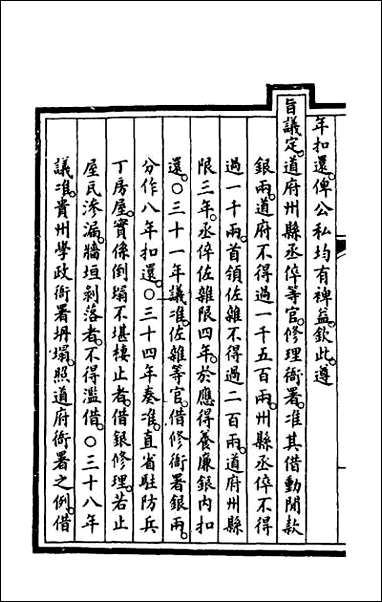 年扣還。俾公私均有裨益。欽此。遵
旨議定。道府州縣丞倅等官。修理衙署。准其借動閒款
銀兩。道府不得過一千五百兩。州縣丞倅不得
過一千兩。首領佐雜不得過二百兩。道府州縣
限三年。丞倅佐雜限四年。於應得養廉銀內扣
還。○三十一年議准。佐雜等官。借修衙署銀兩。
分作八年扣還。○三十四年奏准。直省駐防兵
丁房屋。實係倒塌不堪棲止者。借銀修理。若止
屋瓦滲漏。牆垣剝落者。不得濫借。○三十八年
議准。貴州學政衙署坍塌。照道府衙署之例。借